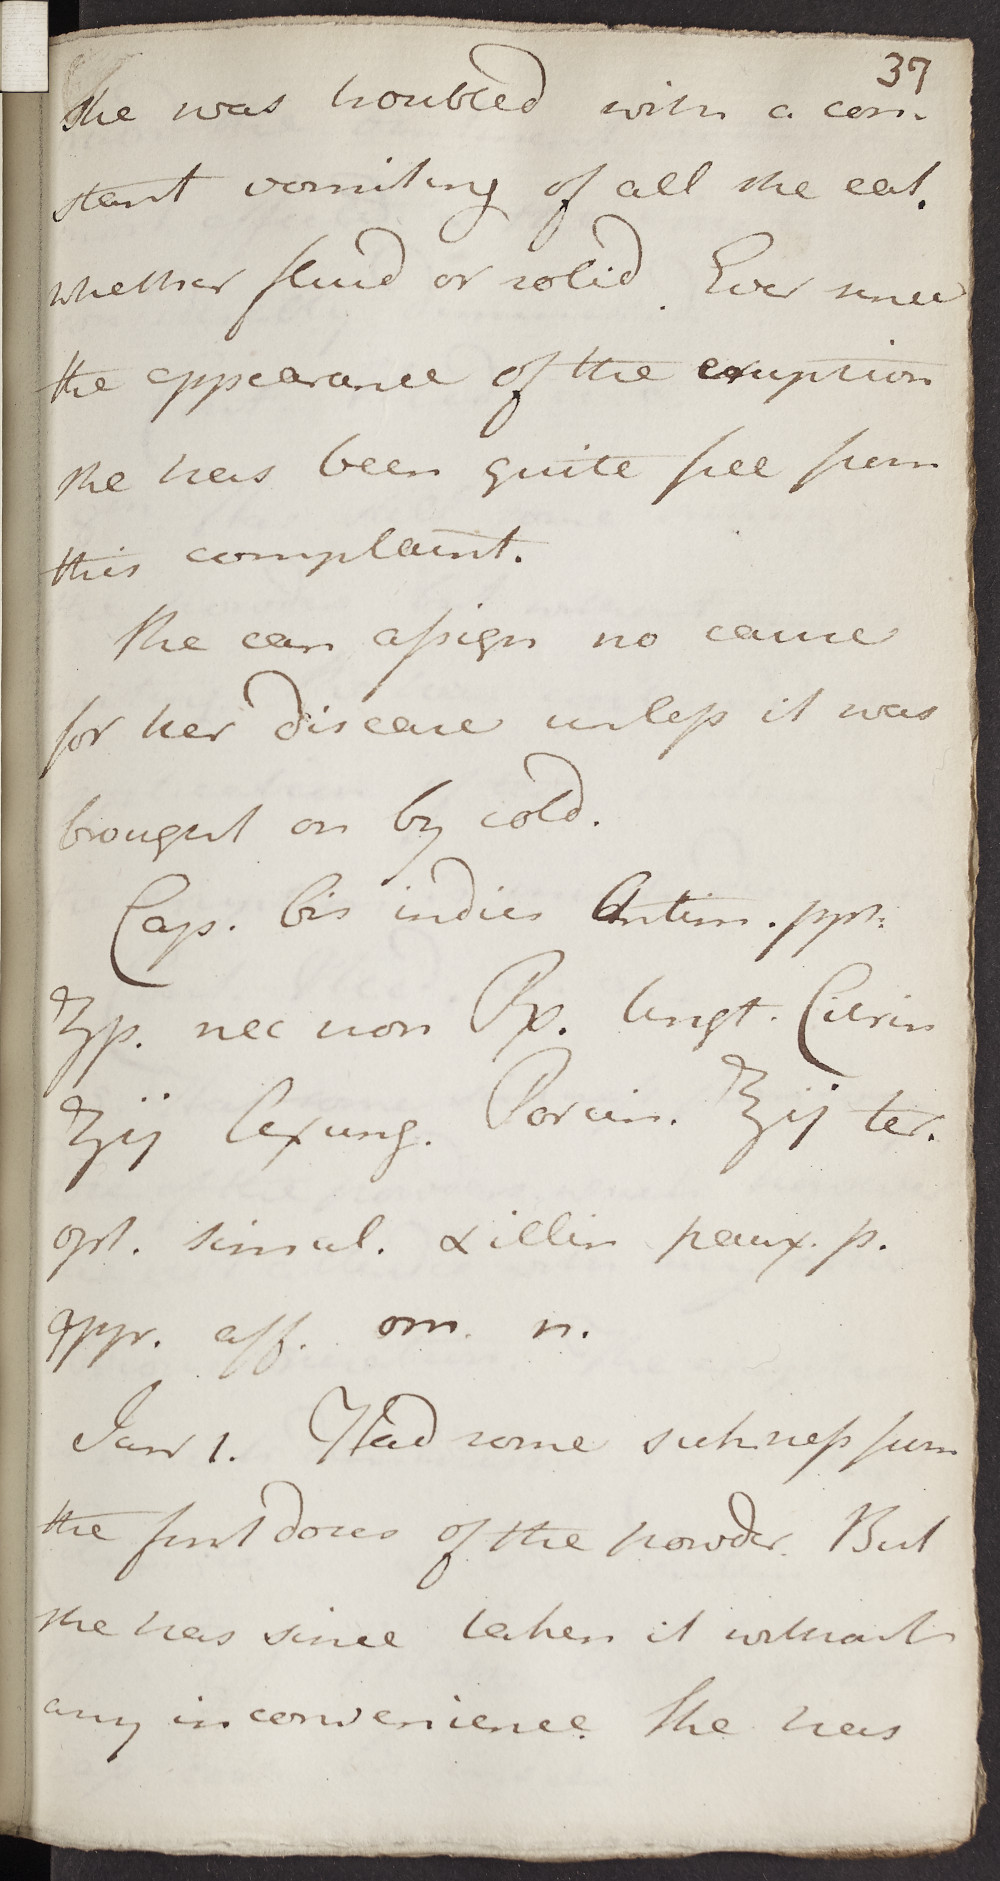 37
She was troubled with a con-
stant vomiting of all she eat.
whether fluid or solid. Ever since
the appearance of the eruption
she has been quite free from
this complaint.
She can assign no cause
for her disease unless it was
brought on by cold.
Cap. bis indies Antim. ppt:
ʒp. nec non Rx. Ungt. Citrin
ʒij Axung. Porcin. ʒij ter.
opt. simul. & illin paux. p.
appr. aff. om. n.
Jany 1. Had some sickness from
the first doses of the powder. But
she has since taken it without
any inconvenience. She has